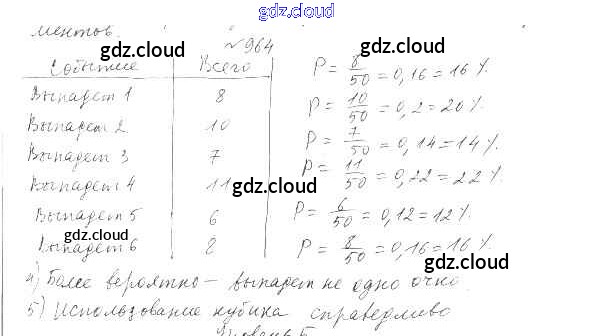 gdz.cloud
ментов.
№964
gdz.cloud gdz.cloud
Событие Всего P = 8/50 = 0,16 = 16%.
Выпадет 1 8 P = 10/50 = 0,2 = 20%.
Выпадет 2 10 P = 7/50 = 0,14 = 14%.
Выпадет 3 7 P = 11/50 = 0,22 = 22%.
Выпадет 4 11 P = 6/50 = 0,12 = 12%.
gdz.cloud
Выпадет 5 6 P = 8/50 = 0,16 = 16%.
gdz.cloud
Выпадет 6 8
4) Более вероятно – выпадет не одно очко.
5) Использование кубика справедливо
gdz.cloud